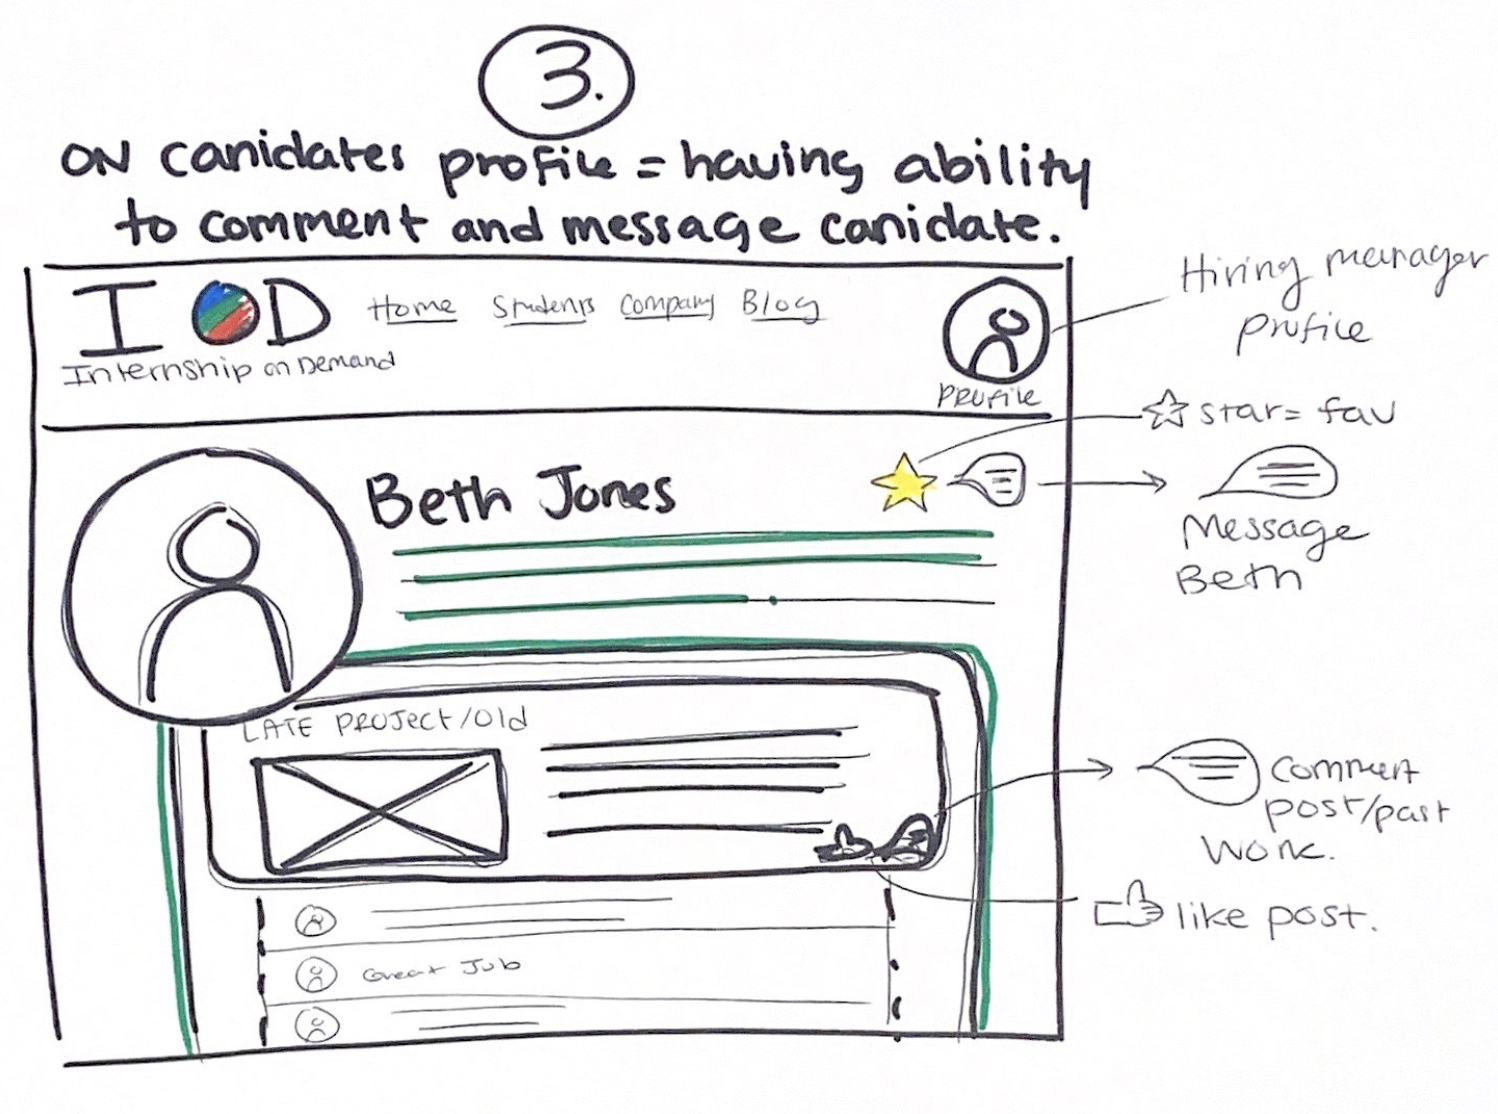 3.
ON canidates profile = having ability
to comment and message canidate.
I O D
Home Students Company Blog
Internship on Demand
Profile
Hiring manager
profile
star = fav
Beth Jones
Message
Beth
LATE PROJECT/Old
Comment
post/past
work.
like post.
Great Job